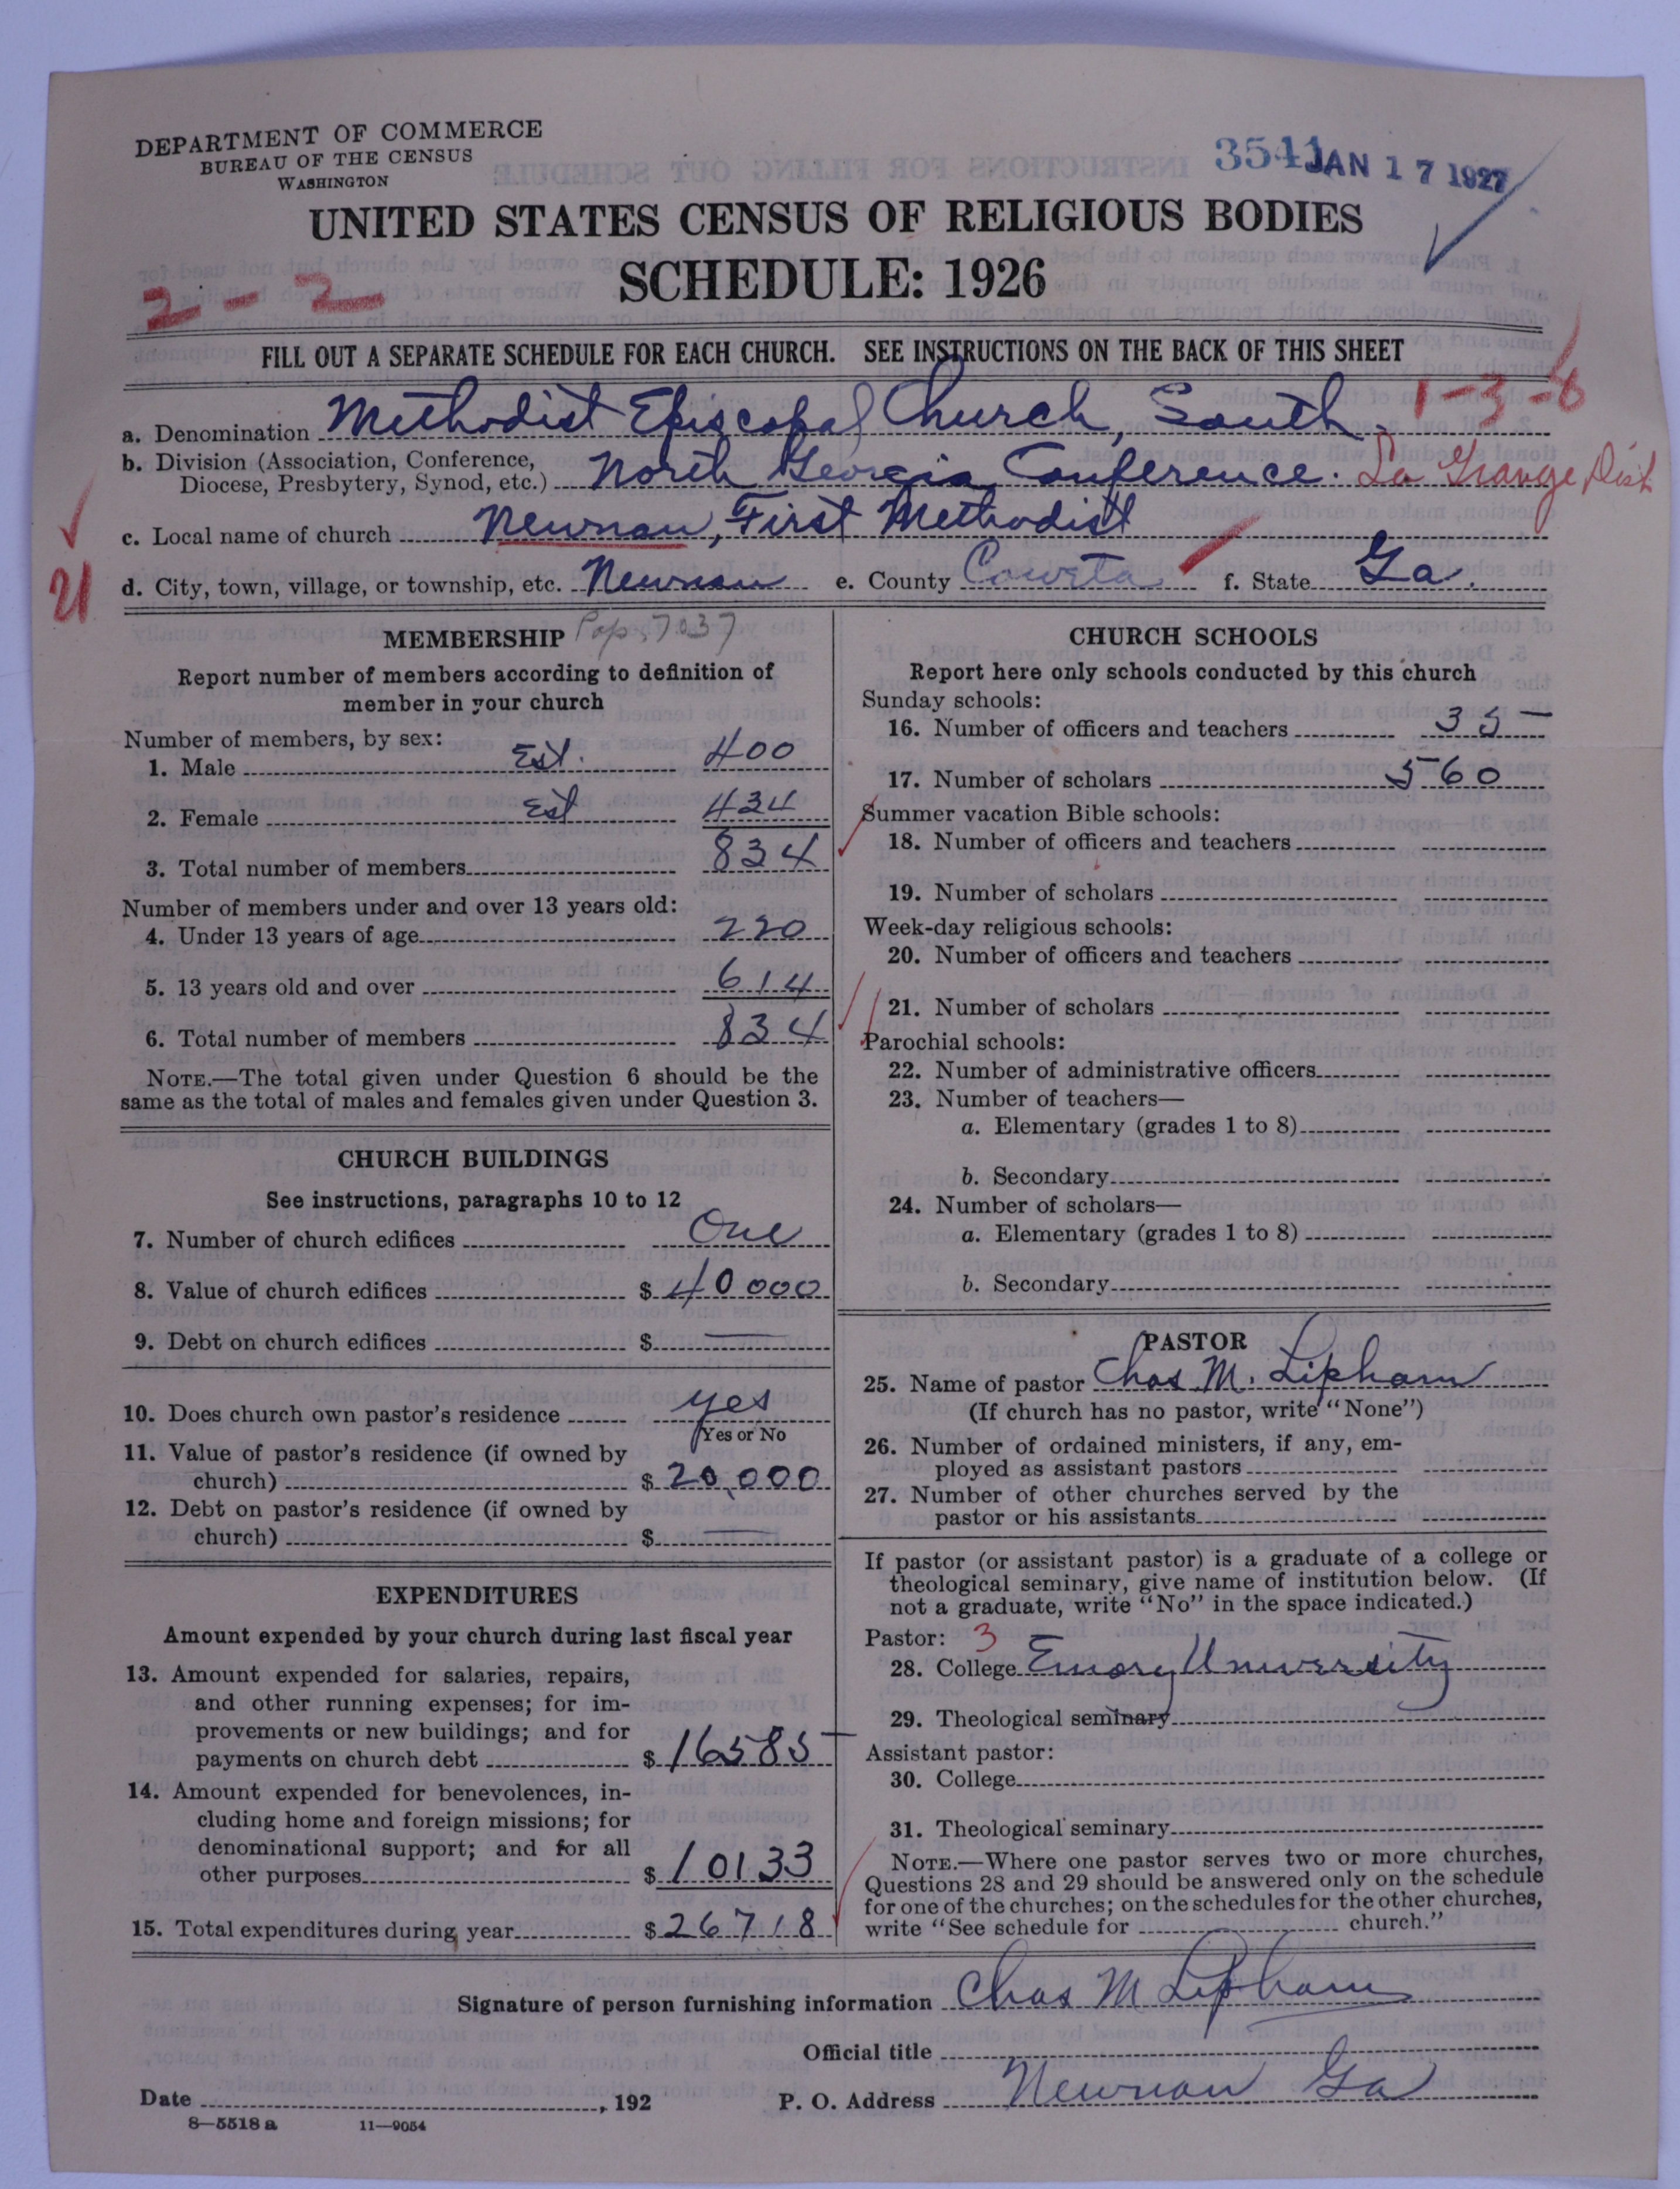 DEPARTMENT OF COMMERCE
BUREAU OF THE CENSUS
WASHINGTON
3541 JAN 17 1927
UNITED STATES CENSUS OF RELIGIOUS BODIES
SCHEDULE: 1926
2-2
FILL OUT A SEPARATE SCHEDULE FOR EACH CHURCH. SEE INSTRUCTIONS ON THE BACK OF THIS SHEET
1-3-6
a. Denomination Methodist Episcopal Church, South.
b. Division (Association, Conference,
Diocese, Presbytery, Synod, etc.) North Georgia Conference. La Grange Dist
c. Local name of church Newnan, First Methodist
d. City, town, village, or township, etc. Newnan e. County Coweta f. State Ga.
21
MEMBERSHIP Pop. 7037
Report number of members according to definition of
member in your church
Number of members, by sex:
1. Male Est. 400
2. Female Est 434
3. Total number of members 834
Number of members under and over 13 years old:
4. Under 13 years of age 220
5. 13 years old and over 614
6. Total number of members 834
NOTE.—The total given under Question 6 should be the
same as the total of males and females given under Question 3.
CHURCH BUILDINGS
See instructions, paragraphs 10 to 12
7. Number of church edifices One
8. Value of church edifices $ 40000
9. Debt on church edifices $ —
10. Does church own pastor's residence yes
Yes or No
11. Value of pastor's residence (if owned by
church) $ 20,000
12. Debt on pastor's residence (if owned by
church) $ —
EXPENDITURES
Amount expended by your church during last fiscal year
13. Amount expended for salaries, repairs,
and other running expenses; for im-
provements or new buildings; and for
payments on church debt $ 16585
14. Amount expended for benevolences, in-
cluding home and foreign missions; for
denominational support; and for all
other purposes $ 10133
15. Total expenditures during year $ 26718
CHURCH SCHOOLS
Report here only schools conducted by this church
Sunday schools:
16. Number of officers and teachers 35
17. Number of scholars 560
Summer vacation Bible schools:
18. Number of officers and teachers
19. Number of scholars
Week-day religious schools:
20. Number of officers and teachers
21. Number of scholars
Parochial schools:
22. Number of administrative officers
23. Number of teachers—
a. Elementary (grades 1 to 8)
b. Secondary
24. Number of scholars—
a. Elementary (grades 1 to 8)
b. Secondary
PASTOR
25. Name of pastor Chas M. Lipham
(If church has no pastor, write "None")
26. Number of ordained ministers, if any, em-
ployed as assistant pastors
27. Number of other churches served by the
pastor or his assistants
If pastor (or assistant pastor) is a graduate of a college or
theological seminary, give name of institution below. (If
not a graduate, write "No" in the space indicated.)
Pastor: 3
28. College Emory University
29. Theological seminary
Assistant pastor:
30. College
31. Theological seminary
NOTE.—Where one pastor serves two or more churches,
Questions 28 and 29 should be answered only on the schedule
for one of the churches; on the schedules for the other churches,
write "See schedule for church."
Signature of person furnishing information Chas M Lipham
Official title
Date , 192 P. O. Address Newnan Ga
8—5518a 11—9054